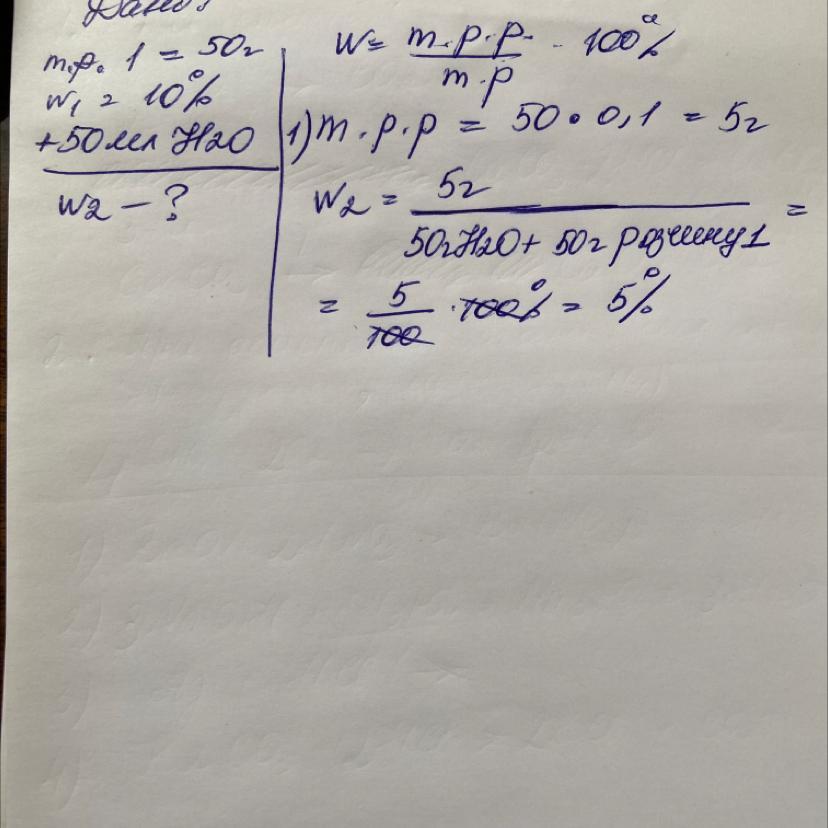 Дано:
m.р. 1 = 50г
w1 = 10%
+50мл H2O
w2 - ?
w = m.р.р. / m.р · 100%
1) m.р.р = 50 · 0,1 = 5г
w2 = 5г / 50гH2O + 50г розчину1 =
= 5/100 · 100% = 5%